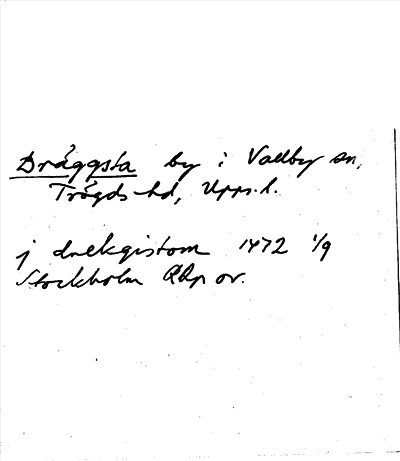 Dråggsta by i Vallby sn,
Trögds hd, Upps. l.
j drekgistom 1472 1/9
Stockholm RAp or.